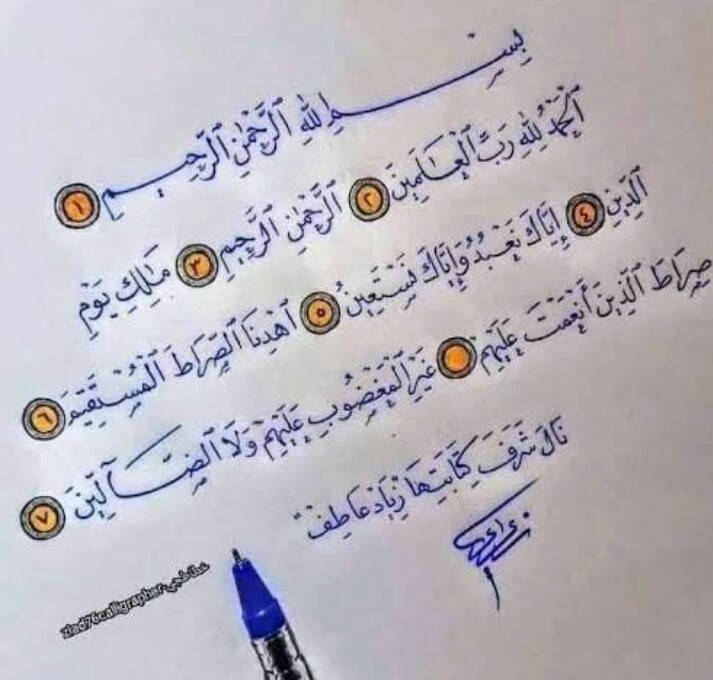 بِسْمِ ٱللَّهِ ٱلرَّحْمَٰنِ ٱلرَّحِيمِ ١
ٱلْحَمْدُ لِلَّهِ رَبِّ ٱلْعَـٰلَمِينَ ٢ ٱلرَّحْمَٰنِ ٱلرَّحِيمِ ٣ مَـٰلِكِ يَوْمِ
ٱلدِّينِ ٤ إِيَّاكَ نَعْبُدُ وَإِيَّاكَ نَسْتَعِينُ ٥ ٱهْدِنَا ٱلصِّرَاطَ ٱلْمُسْتَقِيمَ ٦
صِرَاطَ ٱلَّذِينَ أَنْعَمْتَ عَلَيْهِمْ غَيْرِ ٱلْمَغْضُوبِ عَلَيْهِمْ وَلَا ٱلضَّآلِّينَ ٧
نَالَ شَرَفَ كِتَابَتِهَا زِيَاد عَاطِفْ
ziad76calligrapher